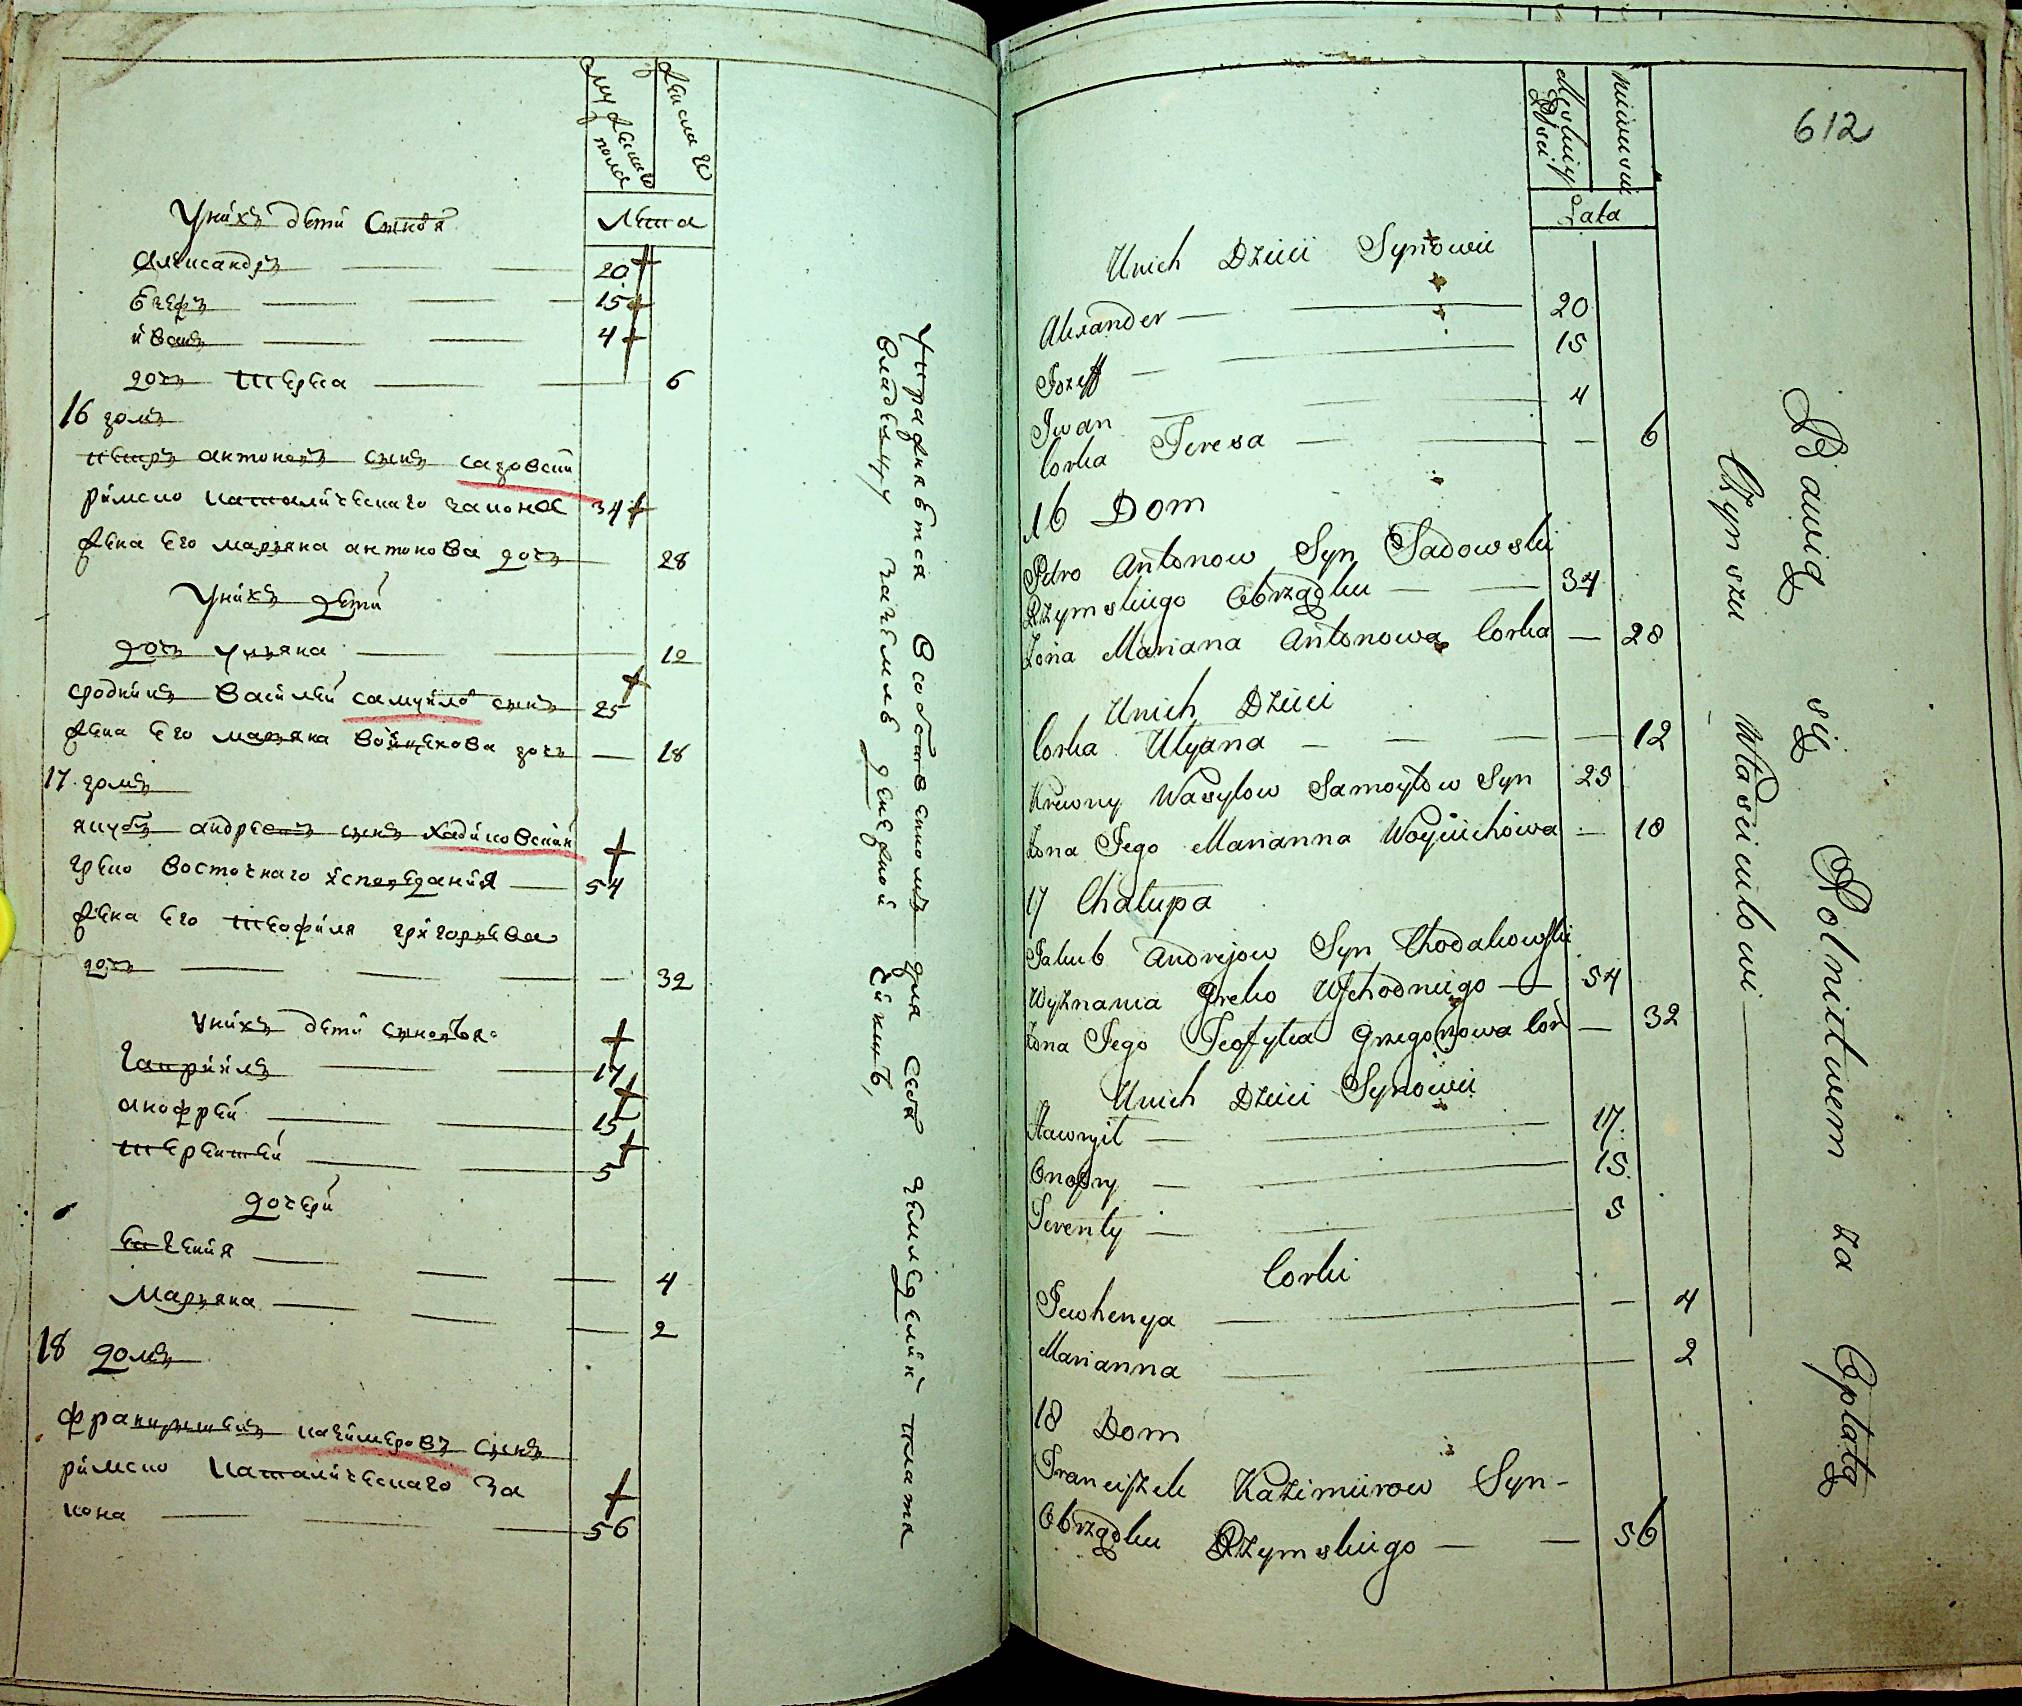 Мужеска пола
Женска го
Лета
У них детй Сыновя
Александръ 20
Єзефъ 15
йванъ 4
дочъ Тереса 6
16 домъ
петръ антоновъ сынъ садовскій
римско католическаго закона 34
жена его марьяна антонова дочъ 28
У них дети
дочъ ульяна 12
сродникъ Василей самуйлов сынъ 25
жена его марьяна войцехова дочъ 18
17 домъ
якубъ андреевъ сынъ хадаковскій
греко восточнаго ісповеданія 54
жена его теофиля григорьева
дочъ 32
У них дети сыновья
гаврійлъ 17
анофрей 15
терентей 5
дочери
евгенія 4
Марьяна 2
18 домъ
францишекъ казимеровъ сынъ
римско католическаго за
кона 56
Упражняется В собственномъ для себя земледелии плата
Владельцу за землю денежной
612
Męskiej Płci
niewieści
Lata
U nich Dzieci Synowie
Alexander 20
Jozeff 15
Iwan 4
Corka Teresa 6
16 Dom
Petro Antonow Syn Sadowski
Rzymskiego Obrządku 34
Żona Mariana Antonowa Corka 28
U nich Dzieci
Corka Ulyana 12
Krewny Wasylow Samoyłow Syn 25
Żona Jego Marianna Woyciechowa 18
17 Chałupa
Jakub Andrejow Syn Chodakowski
Wyznania Greko Wschodniego 54
Żona Jego Teofylia Gregorjowa Cor 32
U nich Dzieci Synowie
Hawryił 17
Onofry 15
Terenty 5
Corki
Jewhenya 4
Marianna 2
18 Dom
Franciszek Kazimiirow Syn
Obrządku Rzymskiego 56
Bawią się Rolnictwem za Opłatą
Czynszu Właścicielowi